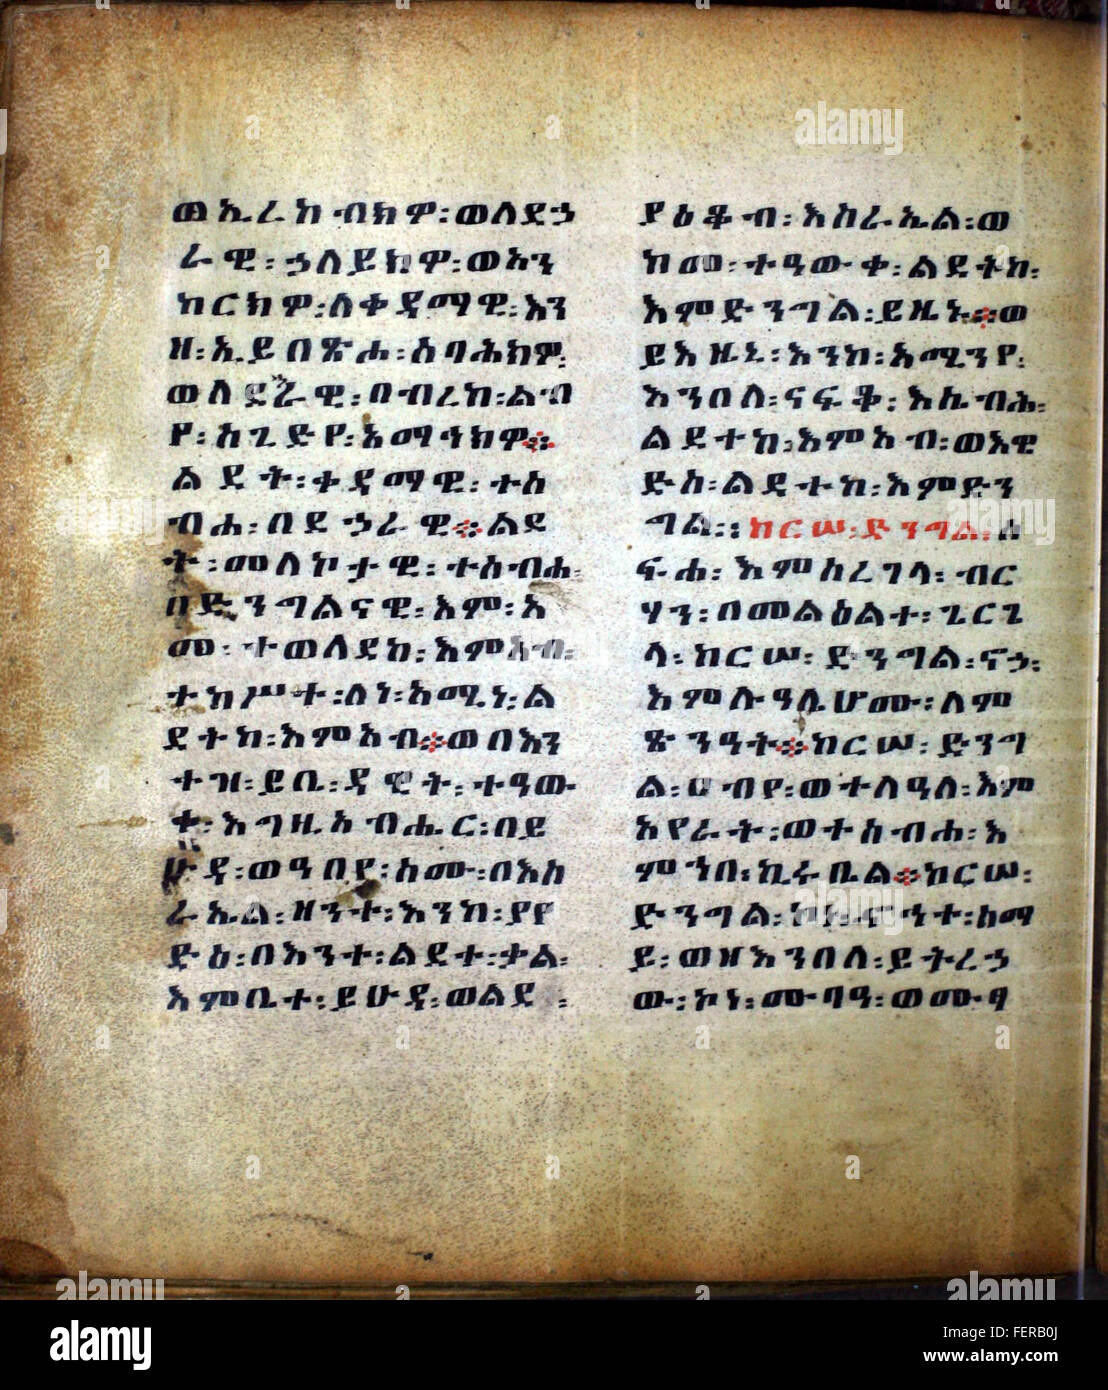 ወኢረከብክዎ፡ወለደኃ
ራዊ፡ኃለይክዎ፡ወአን
ከርክዎ፡ለቀዳማዊ፡እን
ዘ፡ኢይበጽሐ፡ሰባሕክዎ፡
ወለደኃራዊ፡በብረከ፡ልብ
የ፡ሰጊድየ፡አማኅክዎ።
ልደት፡ቀዳማዊ፡ተሰ
ብሐ፡በደኃራዊ።ልደ
ት፡መለኮታዊ፡ተሰብሐ፡
በድንግልናዊ፡እም፡አ
መ፡ተወለደከ፡እምአብ፡
ተከሥተ፡ለነ፡አሚነ፡ል
ደተከ፡እምአብ።ወበእን
ተዝ፡ይቤ፡ዳዊት፡ተዓው
ቀ፡እግዚአብሔር፡በይ
ሁዳ፡ወዓበየ፡ስሙ፡በእስ
ራኤል፡ዘንተ፡እንከ፡ያየ
ድዕ፡በእንተ፡ልደተ፡ቃል፡
እምቤተ፡ይሁዳ፡ወልደ፡
ያዕቆብ፡እስራኤል፡ወ
ከመ፡ተዓውቀ፡ልደትከ፡
እምድንግል፡ይዜኑ።ወ
ይእዜኒ፡እንከ፡አሚንየ፡
እንበለ፡ናፍቆ፡እሴብሕ፡
ልደተከ፡እምአብ፡ወእዊ
ድስ፡ልደተከ፡እምድን
ግል።ክርሠ፡ድንግል፡ሰ
ፍሐ፡እምሰረገላ፡ብር
ሃን፡በመልዕልተ፡ጊርጊ
ላ፡ከርሠ፡ድንግል፡ናኃ፡
እምሉዓሌሆሙ፡ለም
ጽንዓት።ከርሠ፡ድንግ
ል፡ዐብየ፡ወተለዓለ፡እም
አየራት፡ወተሰብሐ፡እ
ምኀበ፡ኪሩቤል።ከርሠ፡
ድንግል፡ኮነ፡ፍኅተ፡ሰማ
ይ፡ወዘእንበለ፡ይትረኃ
ው፡ኮነ፡ሙባዓ፡ወሙፃ
alamy
FERB0J
www.alamy.com